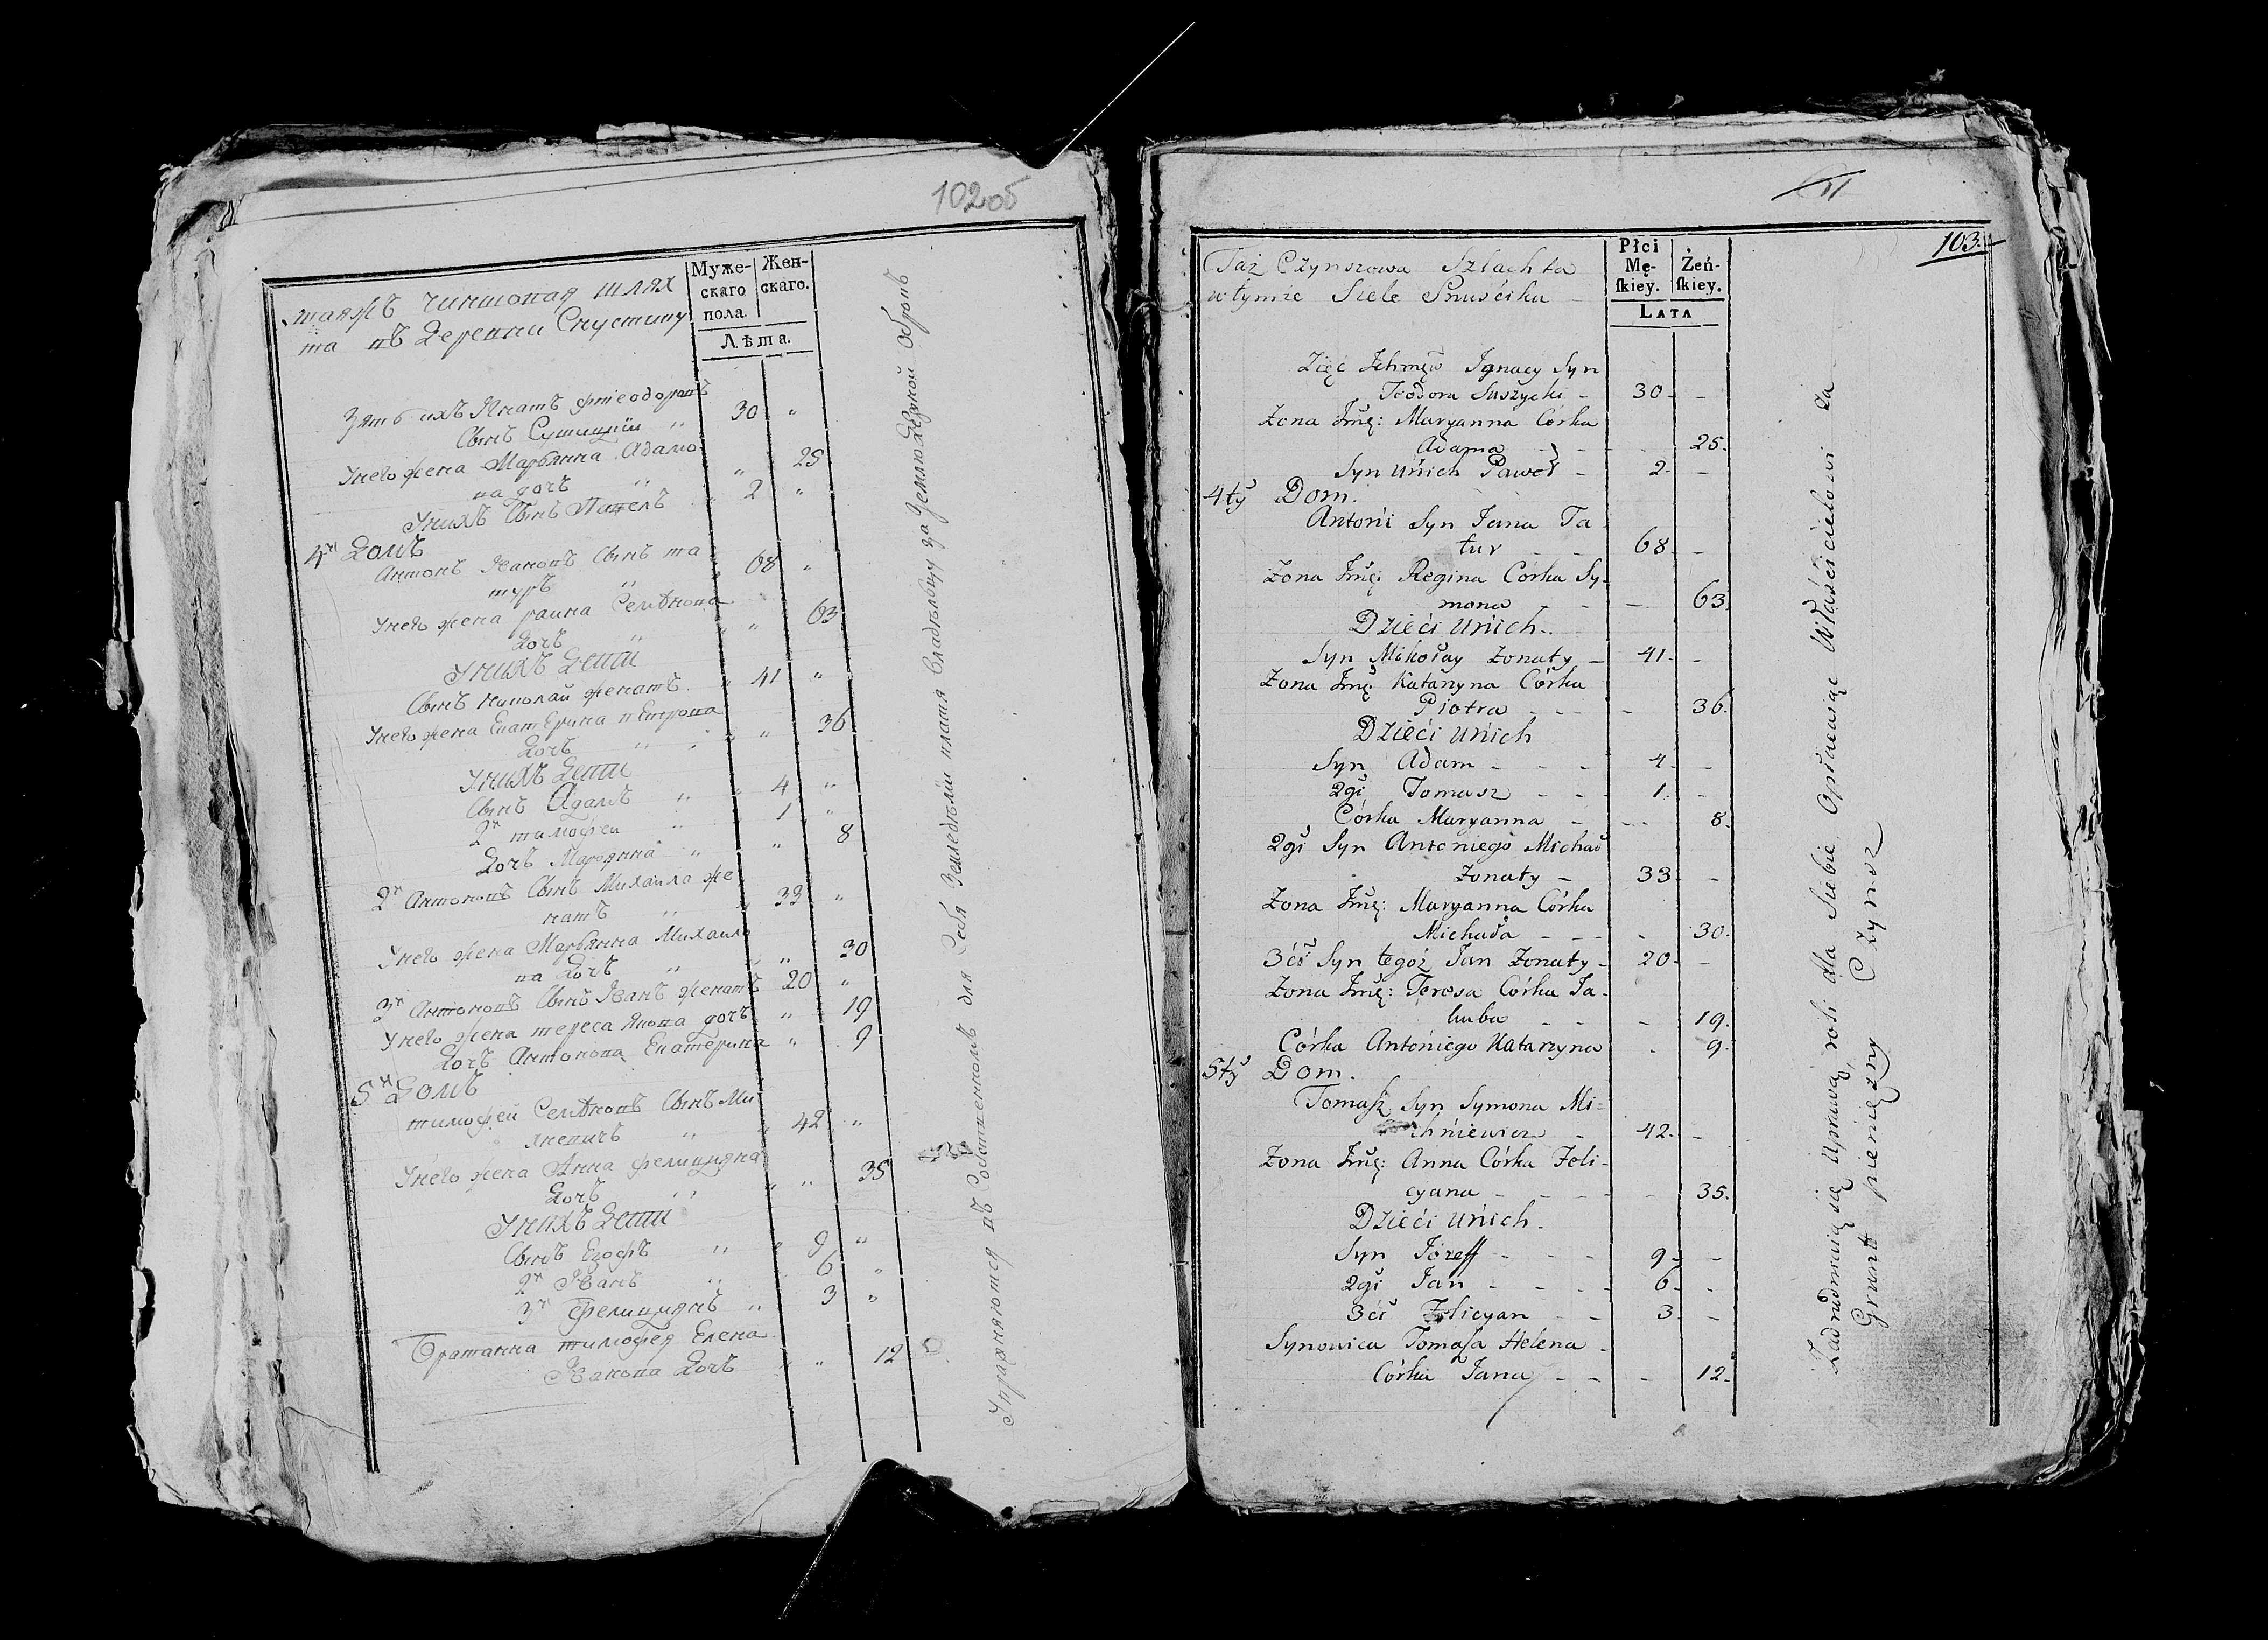 102об
таяжъ чиншовая шлях
та въ деревни Снустику
Муже-
скаго
пола.
Жен-
скаго.
Лѣта.
Зять ихъ Игнатъ Фтеодоровъ
Сынъ Сушицкій " 30 "
У него жена Марьянна Адамо-
ва дочь " " 25
У нихъ Сынъ Павелъ 2 "
4й Домъ
Антонъ Ивановъ Сынъ та
туръ " 68 "
У него жена раина Семѣнова
Дочь " " 63
У нихъ Дети
Сынъ николай женатъ 41 "
У него жена Екатерина пЕтрова
Дочь " " 36
У нихъ Дети
Сынъ Адамъ " 4 "
2й тимофей " 1 "
Дочъ Марянна " " 8
2й Антоновъ Сынъ Михаила же
натъ " 33 "
У него жена Марьянна Михаило
ва Дочь " " 30
3й Антоновъ Сынъ Иванъ женатъ 20 "
У него жена тереса Якова дочь " 19
Дочь Антонова Екатерина " 9
5й Домъ
тимофей Семѣновъ Сынъ Ми
хневичъ " 42 "
У него жена Анна фелициана
Дочь " " 35
У нихъ Дети
Сынъ Езофъ " 9 "
2й Иванъ " 6 "
3й фелициянъ " 3 "
Братанка тимофея Елена
Иванова Дочь " 12
Упражняются въ Собственномъ для Себя Земледѣліи платя Владѣльцу за Землю Денежной Оброкъ
103
Taż Czynszowa Szlachta
w tymże Siele Snuściku
Płci
Mę-
ſkiey.
Żeń-
ſkiey.
LATA
Zięć Ichmęw Ignacy Syn
Teodora Suszycki - 30 - -
Żona Jmę: Maryanna Córka
Adama - - - 25.
Syn Unich Paweł - 2 - -
4ty Dom.
Antoni Syn Jana Ta
tur - - 68 - -
Żona Jmę: Regina Córka Sy-
mona - - - 63.
Dzieci Unich.
Syn Mikołay Żonaty - 41 - -
Żona Jmę: Katarzyna Córka
Piotra - - - - 36.
Dzieci Unich
Syn Adam - - - 4 - -
2gi Tomasz - - - 1 - -
Córka Maryanna - - - 8.
2gi Syn Antoniego Michał
Żonaty - 33 - -
Żona Jmę: Maryanna Córka
Michała - - - - 30.
3ci Syn tegoż Jan Żonaty - 20 - -
Żona Jmę: Teresa Córka Ja-
kuba - - - 19.
Córka Antoniego Katarzyna - 9.
5ty Dom.
Tomaſz Syn Symona Mi=
chniewicz - 42 - -
Żona Jmę: Anna Córka Feli-
cyana - - - - - 35.
Dzieci Unich.
Syn Jozeff - - - 9 - -
2gi Jan - - - - 6 - -
3ci Felicyan - - 3 - -
Synowica Tomaſa Helena -
Córka Jana - - - 12.
Zadrudniaią się Uprawą roli dla Siebie Opłacaiąc Właścicielowi za
Grunt pienięzny Czynsz